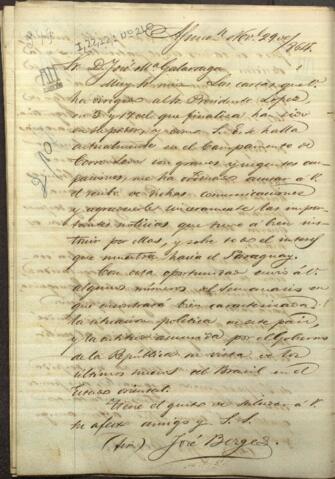 I,22,12,1 nº 210
Asunⁿ Nov.ᵉ 29 de 1864.
Sr. D. José Mª Galarraga
Muy Sr. mio: Las cartas que V.
ha dirigido al Sr. Presidente Lopez,
en 3 y 17 del que finaliza han sido
en su poder, y como S. E. se halla
actualmente en el Campamento de
Cerro Leon con graves y urgentes ocu-
paciones, me ha ordenado acusar á V.
el recibo de dichas comunicaciones
y agradecerle sinceramente las impor-
tantes noticias que tuvo a bien tras-
mitir por ellas, y sobre todo el interes
que muestra hacia el Paraguay.
Con esta oportunidad envio á V.
algunos números del Semanario en
que encontrará bien caracterizada
la situacion politica de este pais,
y la actitud asumida por el Gobierno
de la República en vista de los
últimos sucesos del Brasil en el
Estado oriental.
Tiene el gusto de saludar á V.
su afmo amigo y S. S.
(fir.) José Berges.